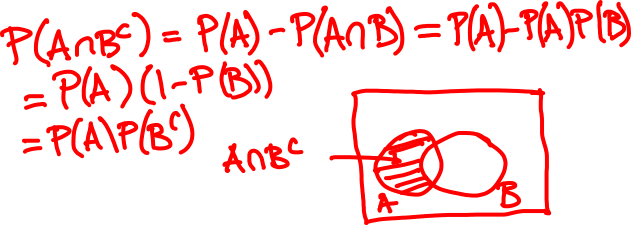 P(A∩Bᶜ) = P(A) - P(A∩B) = P(A)-P(A)P(B)
= P(A)(1-P(B))
= P(A)P(Bᶜ)
A∩Bᶜ
A B